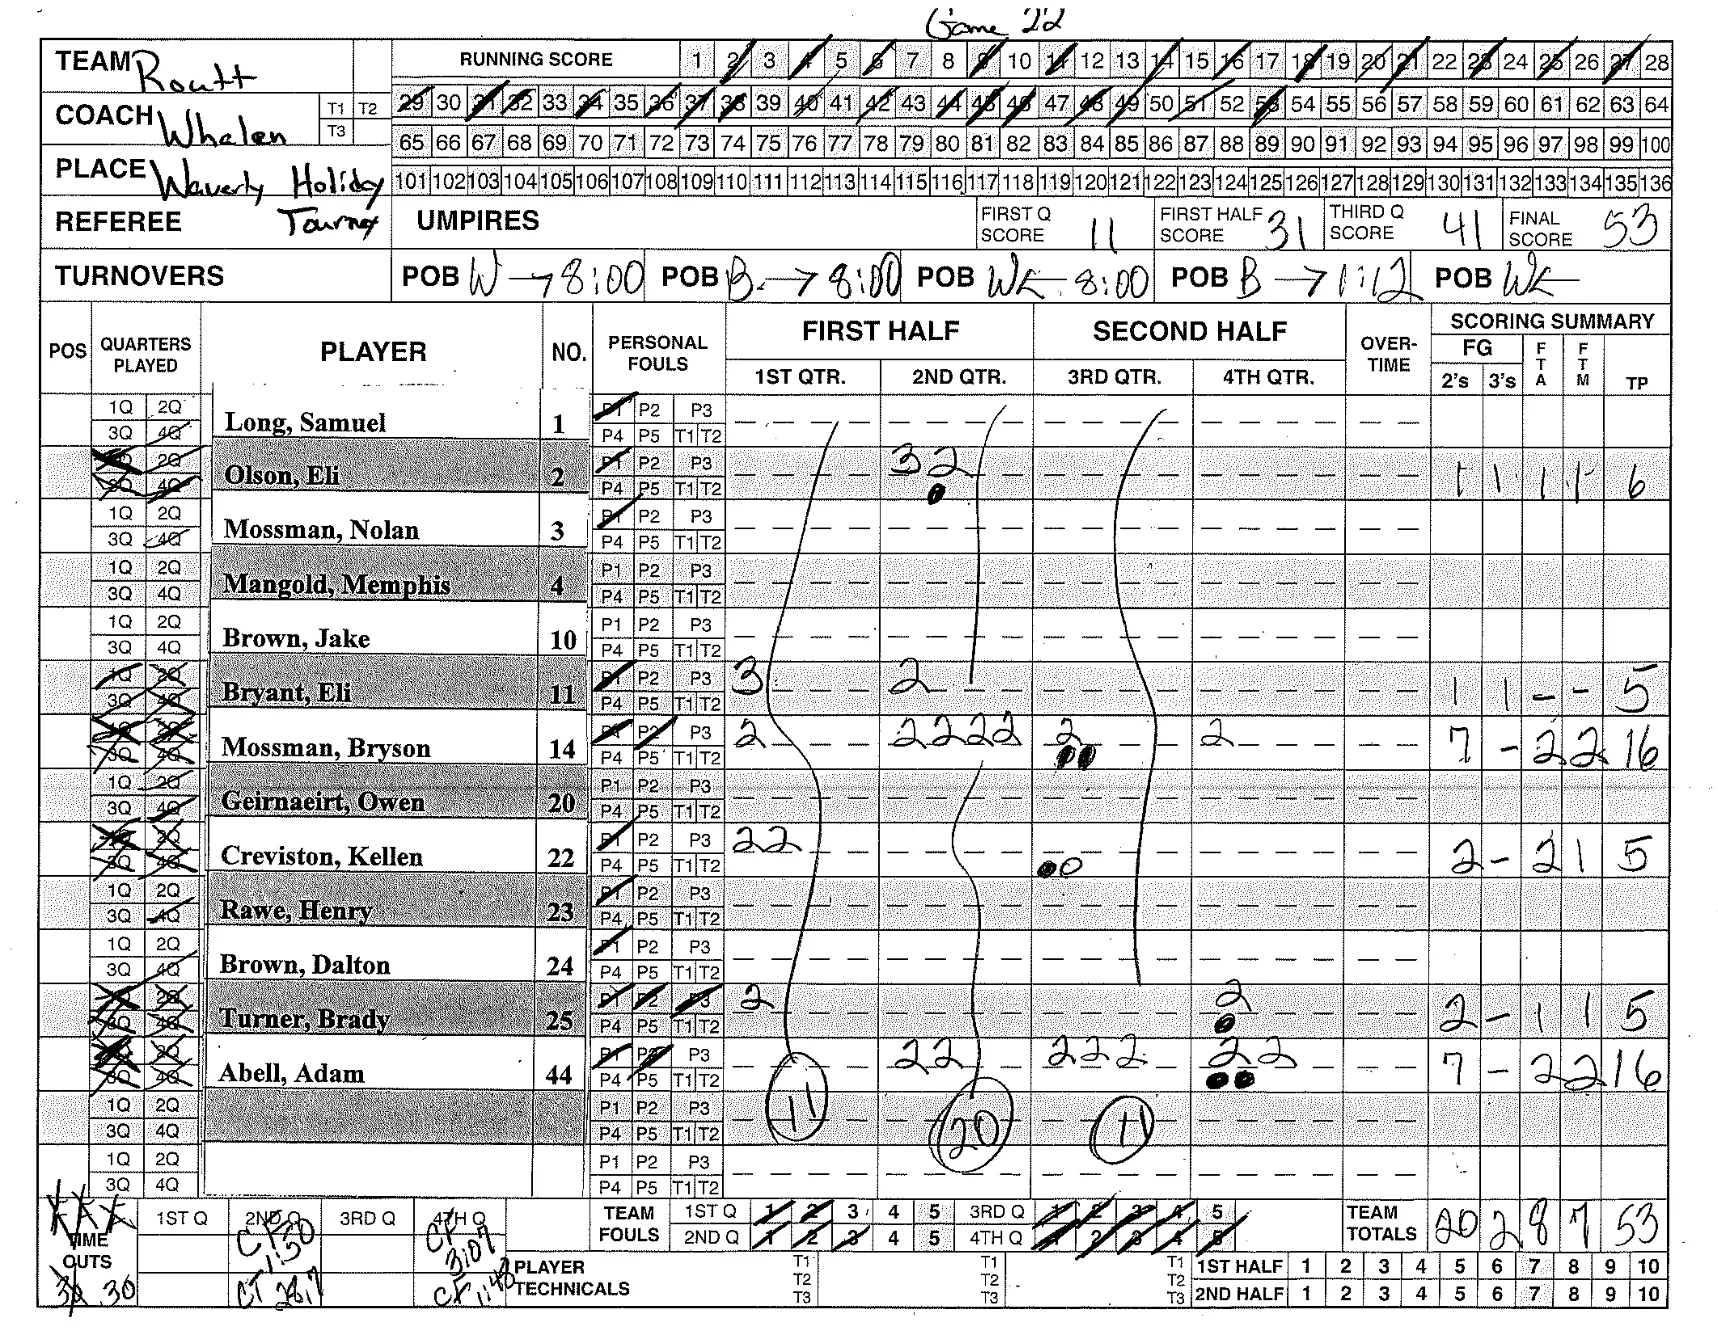 Game 22
TEAM Routt
RUNNING SCORE 1 2 3 4 5 6 7 8 9 10 11 12 13 14 15 16 17 18 19 20 21 22 23 24 25 26 27 28
29 30 31 32 33 34 35 36 37 38 39 40 41 42 43 44 45 46 47 48 49 50 51 52 53 54 55 56 57 58 59 60 61 62 63 64
COACH Whalen T1 T2 T3
65 66 67 68 69 70 71 72 73 74 75 76 77 78 79 80 81 82 83 84 85 86 87 88 89 90 91 92 93 94 95 96 97 98 99 100
PLACE Waverly Holiday Tourney
101 102 103 104 105 106 107 108 109 110 111 112 113 114 115 116 117 118 119 120 121 122 123 124 125 126 127 128 129 130 131 132 133 134 135 136
REFEREE UMPIRES FIRST Q SCORE 11 FIRST HALF SCORE 31 THIRD Q SCORE 41 FINAL SCORE 53
TURNOVERS POB W → 8:00 POB B → 8:00 POB 8:00 POB B → 1:12 POB
POS QUARTERS PLAYED PLAYER NO. PERSONAL FOULS FIRST HALF SECOND HALF OVER-TIME SCORING SUMMARY
1ST QTR. 2ND QTR. 3RD QTR. 4TH QTR. FG 2's 3's FTA FTM TP
1Q 2Q 3Q 4Q Long, Samuel 1 P1 P2 P3 P4 P5 T1 T2
1Q 2Q 3Q 4Q Olson, Eli 2 P1 P2 P3 P4 P5 T1 T2 3 2 1 1 1 1 6
1Q 2Q 3Q 4Q Mossman, Nolan 3 P1 P2 P3 P4 P5 T1 T2
1Q 2Q 3Q 4Q Mangold, Memphis 4 P1 P2 P3 P4 P5 T1 T2
1Q 2Q 3Q 4Q Brown, Jake 10 P1 P2 P3 P4 P5 T1 T2
1Q 2Q 3Q 4Q Bryant, Eli 11 P1 P2 P3 P4 P5 T1 T2 3 2 1 1 - - 5
1Q 2Q 3Q 4Q Mossman, Bryson 14 P1 P2 P3 P4 P5 T1 T2 2 2 2 2 2 2 2 7 - 2 2 16
1Q 2Q 3Q 4Q Geirnaeirt, Owen 20 P1 P2 P3 P4 P5 T1 T2
1Q 2Q 3Q 4Q Creviston, Kellen 22 P1 P2 P3 P4 P5 T1 T2 2 2 2 - 2 1 5
1Q 2Q 3Q 4Q Rawe, Henry 23 P1 P2 P3 P4 P5 T1 T2
1Q 2Q 3Q 4Q Brown, Dalton 24 P1 P2 P3 P4 P5 T1 T2
1Q 2Q 3Q 4Q Turner, Brady 25 P1 P2 P3 P4 P5 T1 T2 2 2 2 - 1 1 5
1Q 2Q 3Q 4Q Abell, Adam 44 P1 P2 P3 P4 P5 T1 T2 2 2 2 2 2 2 2 7 - 2 2 16
1Q 2Q 3Q 4Q P1 P2 P3 P4 P5 T1 T2 11 20 11
1Q 2Q 3Q 4Q P1 P2 P3 P4 P5 T1 T2
TIME OUTS 30 30 1ST Q 2ND Q 3RD Q 4TH Q
CF 1:50 CF 3:07
CT 28.7 CF 1:48
TEAM FOULS 1ST Q 1 2 3 4 5 3RD Q 1 2 3 4 5
2ND Q 1 2 3 4 5 4TH Q 1 2 3 4 5
TEAM TOTALS 20 2 8 7 53
PLAYER TECHNICALS T1 T2 T3 T1 T2 T3 T1 T2 T3
1ST HALF 1 2 3 4 5 6 7 8 9 10
2ND HALF 1 2 3 4 5 6 7 8 9 10